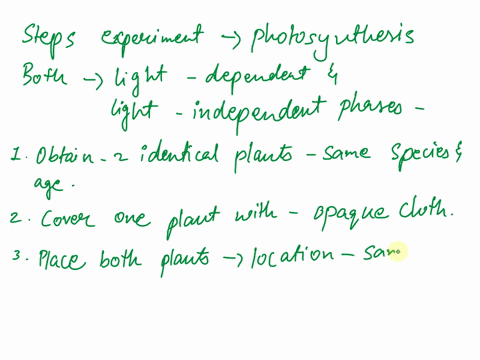 Steps experiment → photosynthesis
Both → light - dependent &
light - independent phases -
1. Obtain - 2 identical plants - same species &
age.
2. Cover one plant with - opaque cloth.
3. Place both plants → location -